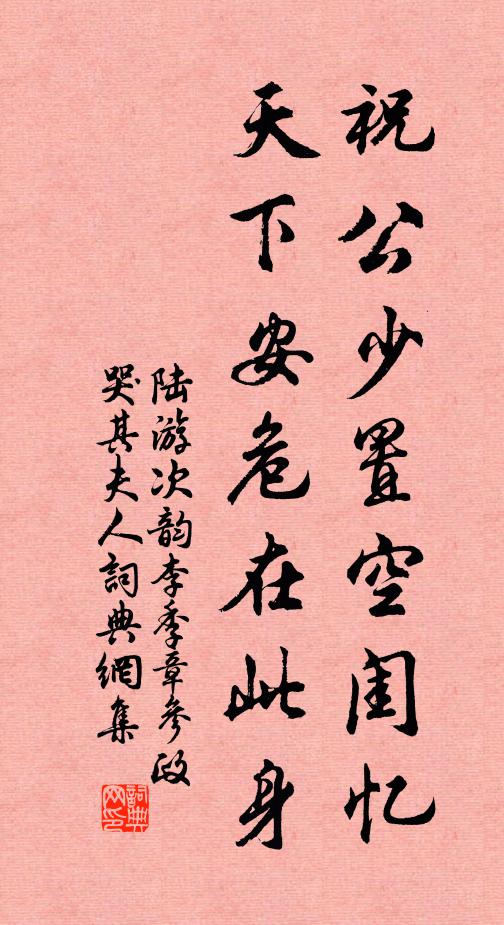 祝公少置空闺忆
天下安危在此身
陆游次韵李季章参政
哭其夫人詞典網集
詞典网印